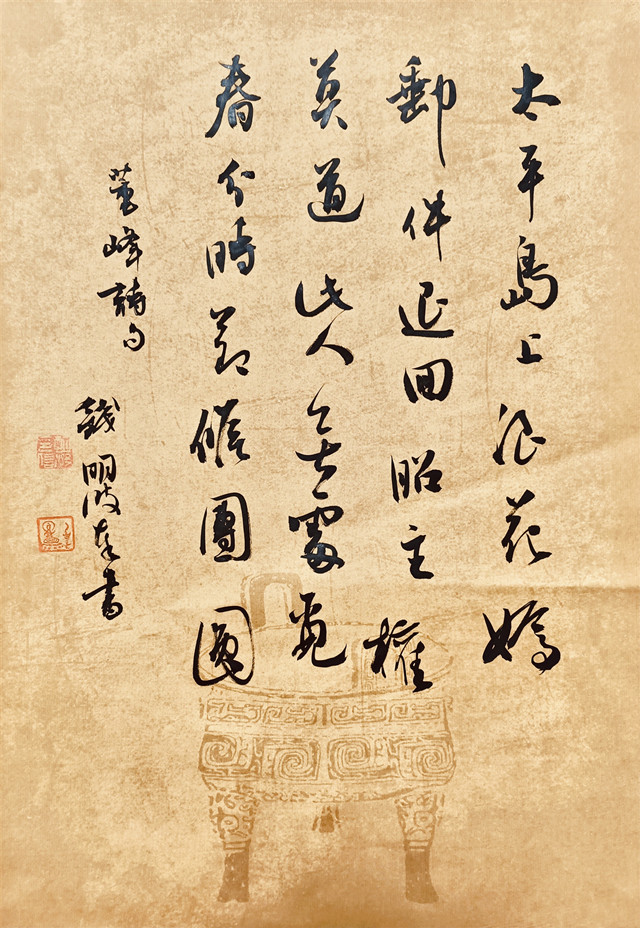 太平島上浪花嬌
郵件退回昭主權
莫道此人無處覓
春分時節候團圓
董峰詩句
錢明波書